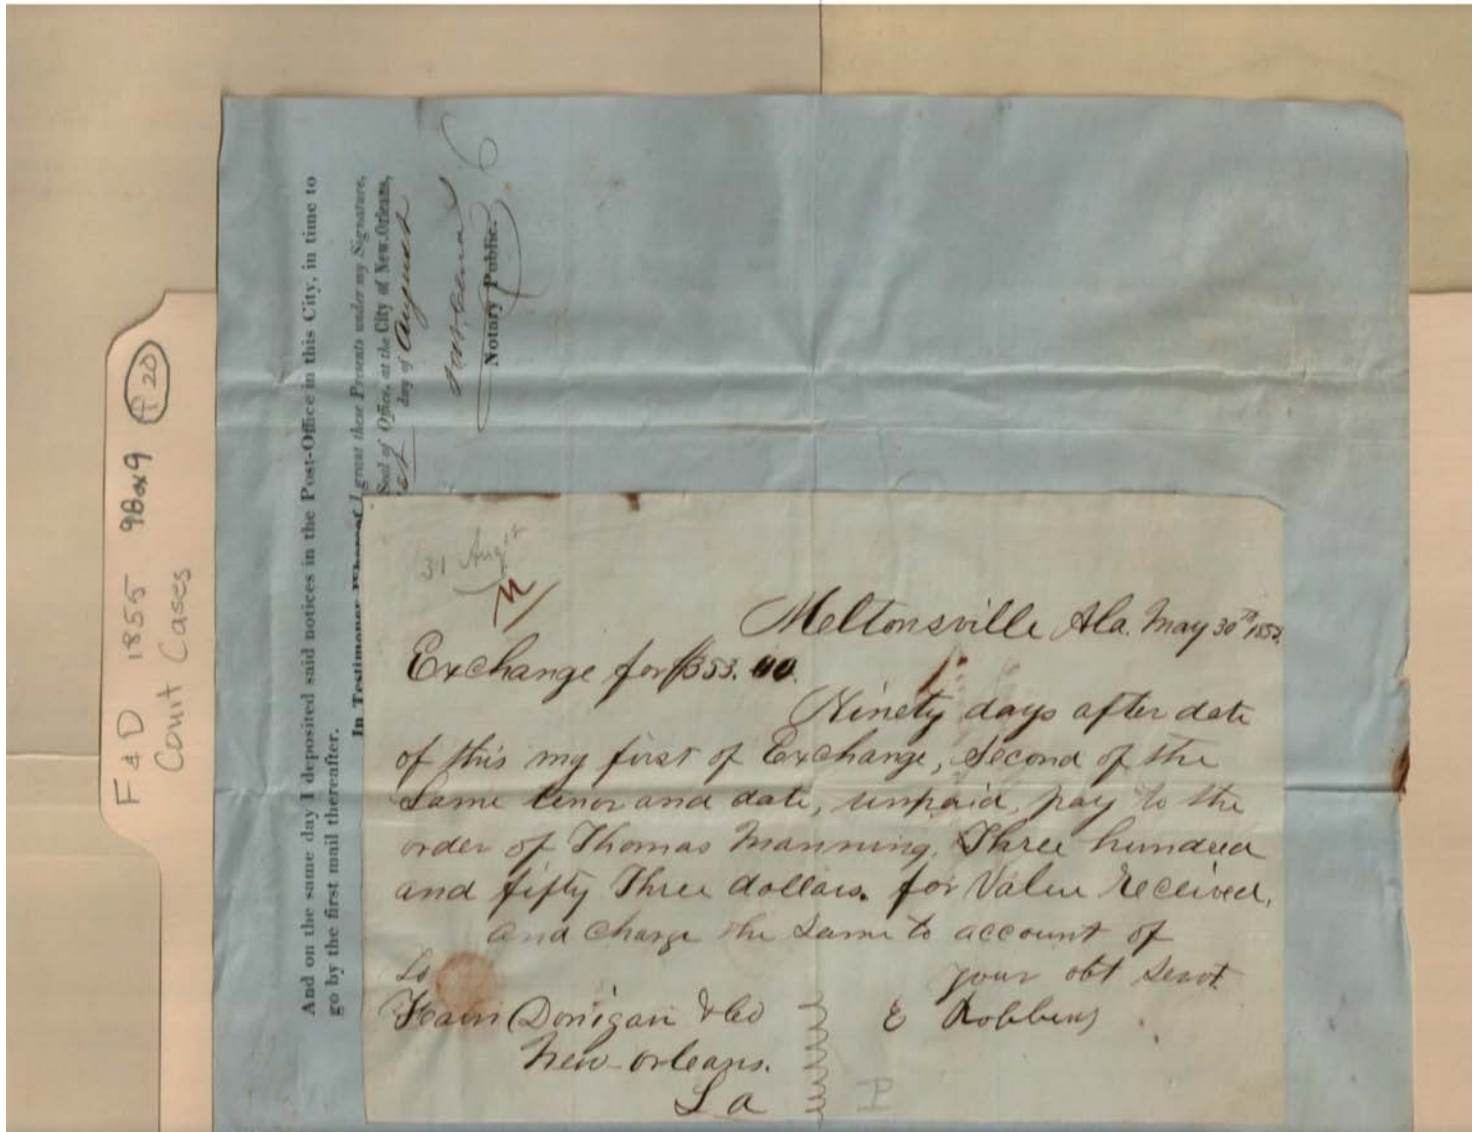 F & D 1855 98 or 9 P 20
Court Cases
And on the same day I deposited said notices in the Post-Office in this City, in time to
go by the first mail thereafter.
In Testimony Whereof I grant these Presents under my Signature,
Seal of Office, at the City of New-Orleans,
day of August
Notary Public.
31 Augst
Meltonsville Ala. May 30th
Exchange for $353.00
Ninety days after date
of this my first of Exchange, Second of the
Same tenor and date, unpaid, pay to the
order of Thomas Manning, Three hundred
and fifty Three dollars. for Value Received,
and charge the Same to account of
To your obt Servt
Donigan & Co E Robbins
New-orleans.
La